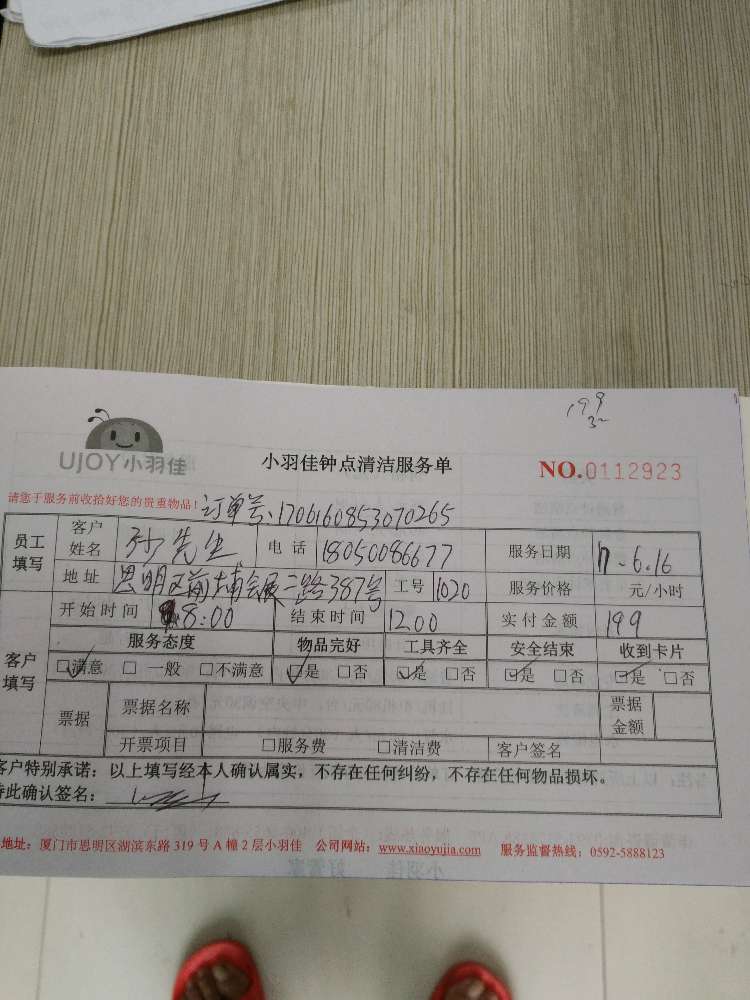 199
3~
UJOY小羽佳
小羽佳钟点清洁服务单
NO.0112923
请您于服务前收拾好您的贵重物品！订单号:1706160853070265
员工填写 客户姓名 孙先生 电话 18050086677 服务日期 17.6.16
地址 思明区前埔会展二路387号 工号 1020 服务价格 元/小时
开始时间 8:00 结束时间 12.00 实付金额 199
客户填写 服务态度 物品完好 工具齐全 安全结束 收到卡片
☑满意 □一般 □不满意 ☑是 □否 ☑是 □否 ☑是 □否 ☑是 □否
票据 票据名称 票据金额
开票项目 □服务费 □清洁费 客户签名
客户特别承诺：以上填写经本人确认属实，不存在任何纠纷，不存在任何物品损坏。
特此确认签名：
地址：厦门市思明区湖滨东路319号A幢2层小羽佳 公司网站：www.xiaoyujia.com 服务监督热线：0592-5888123